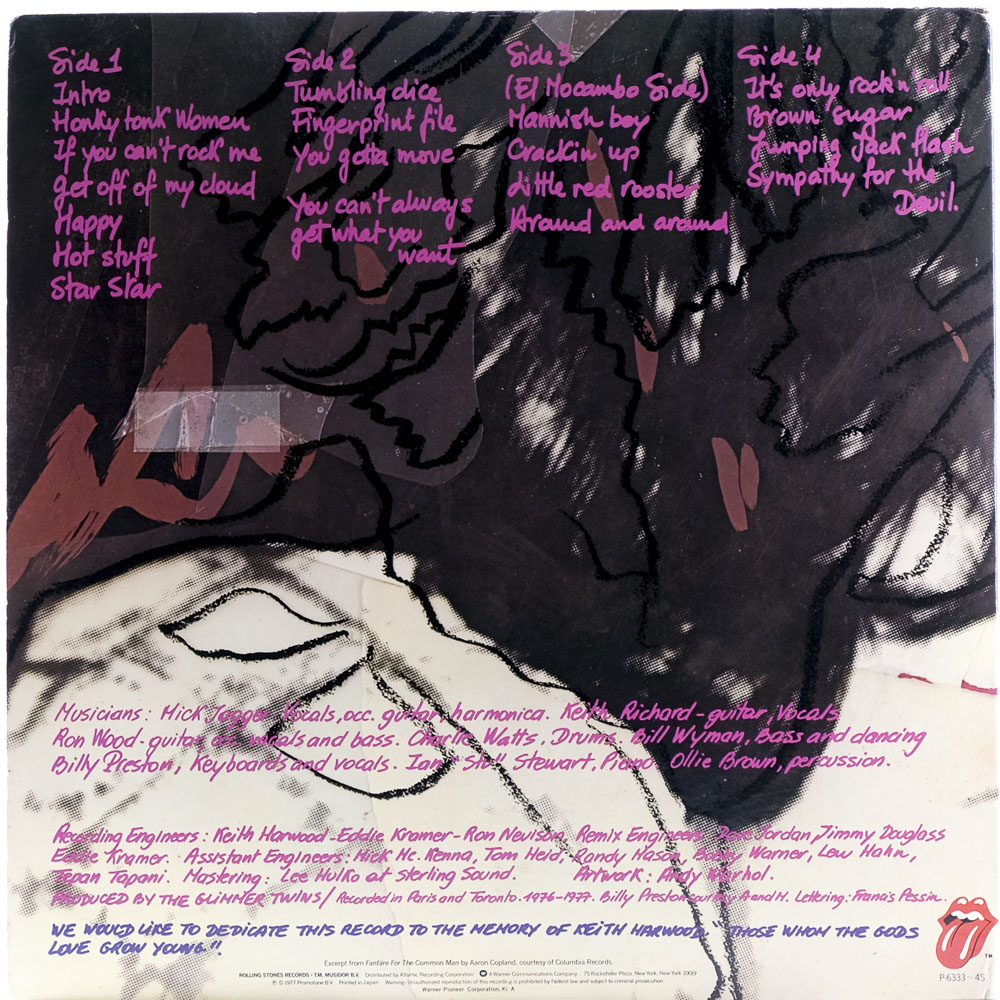 Side 1
Intro
Honky tonk Women
If you can't rock me
get off of my cloud
Happy
Hot stuff
Star Star
Side 2
Tumbling dice
Fingerprint file
You gotta move
You can't always
get what you
want
Side 3
(El Mocambo Side)
Mannish boy
Crackin' up
Little red rooster
Around and around
Side 4
It's only rock'n'roll
Brown sugar
Jumping Jack flash
Sympathy for the
Devil.
Musicians: Mick Jagger Vocals, occ. guitar, harmonica. Keith Richard - guitar, Vocals
Ron Wood - guitar, occ vocals and bass. Charlie Watts, Drums, Bill Wyman, Bass and dancing
Billy Preston, Keyboards and vocals. Ian "Stu" Stewart, Piano Ollie Brown, percussion.
Recording Engineers: Keith Harwood - Eddie Kramer - Ron Nevison, Remix Engineers, Dave Jordan, Jimmy Douglass
Eddie Kramer. Assistant Engineers: Mick Mc. Kenna, Tom Heid, Randy Mason, Bobby Warner, Lew Hahn,
Tapani. Mastering: Lee Hulko at Sterling Sound. Artwork: Andy Warhol.
PRODUCED BY THE GLIMMER TWINS / Recorded in Paris and Toronto. 1976-1977. Billy Preston courtesy A and M. Lettering: Francis Pessin.
WE WOULD LIKE TO DEDICATE THIS RECORD TO THE MEMORY OF KEITH HARWOOD. "THOSE WHOM THE GODS
LOVE GROW YOUNG"!!
Excerpt from Fanfare For The Common Man by Aaron Copland, courtesy of Columbia Records.
ROLLING STONES RECORDS · T.M. MUSIDOR B.V. Distributed by Atlantic Recording Corporation A Warner Communications Company 75 Rockefeller Plaza, New York, New York 10019
℗ © 1977 Promotone B.V. Printed in Japan Warning: Unauthorized reproduction of this recording is prohibited by Federal law and subject to criminal prosecution.
Warner-Pioneer Corporation,
TM
P-6333~4S